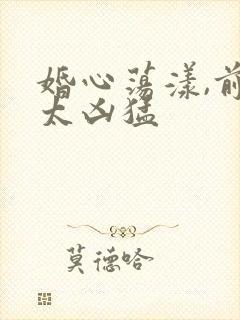 婚心荡漾,前
太凶猛
莫德哈